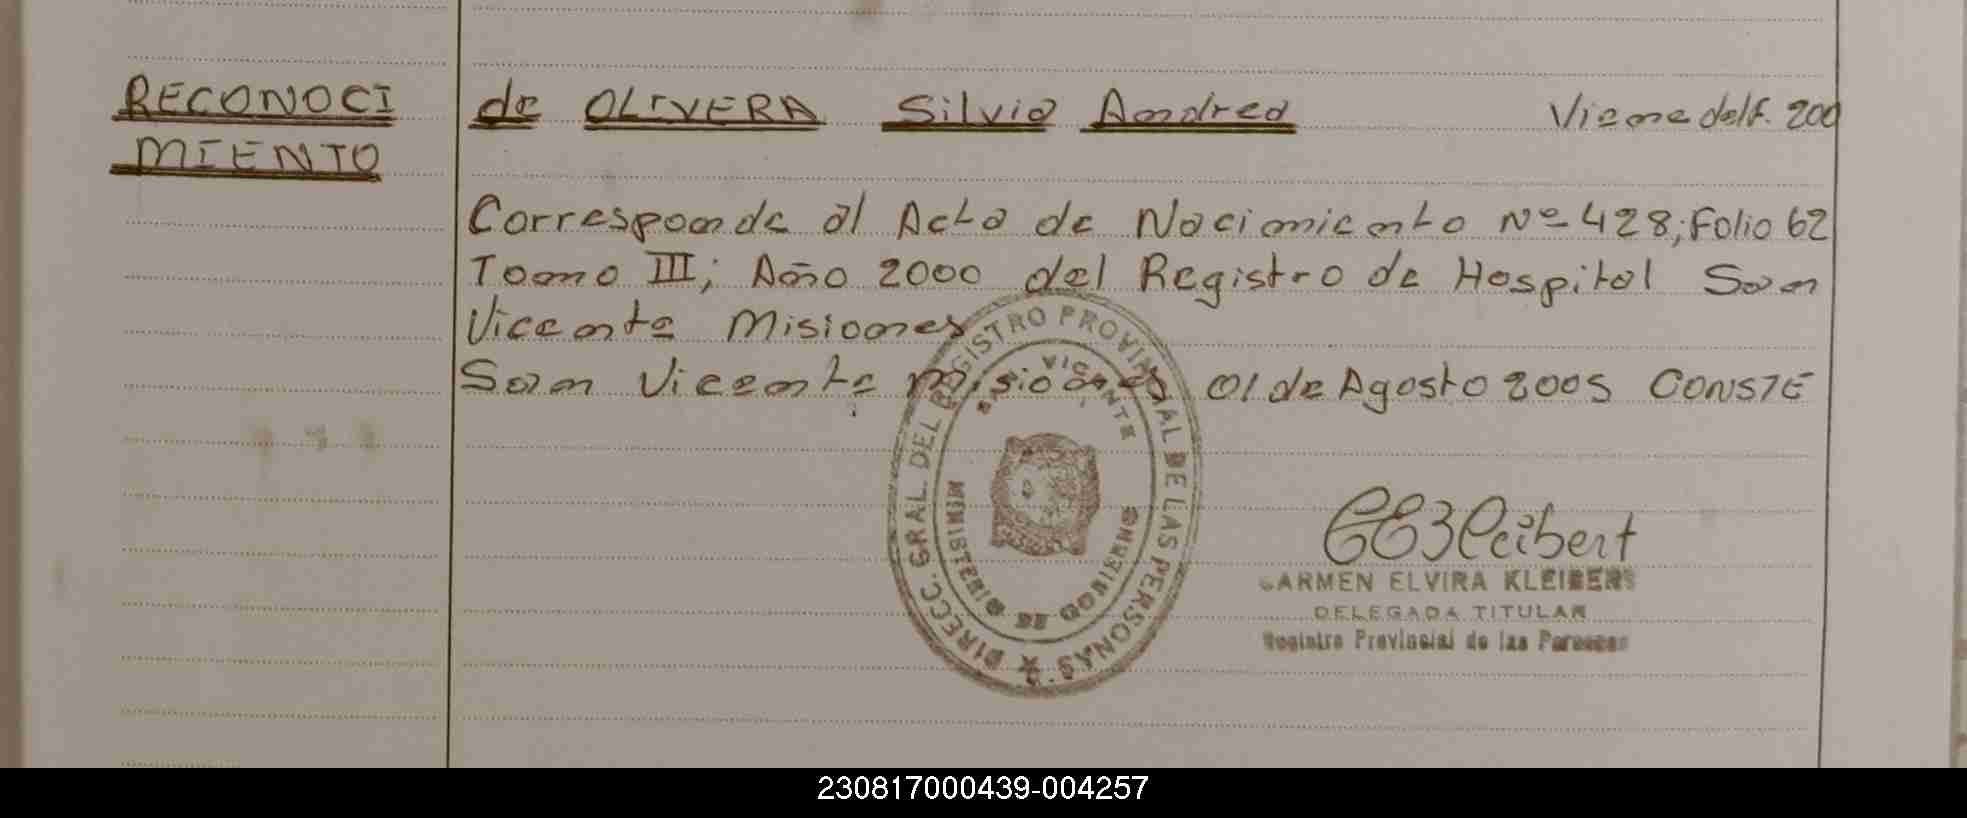 RECONOCI
MIENTO
de OLIVERA Silvia Andrea
Viene del f. 200
Corresponde al Acta de Nacimiento Nº 428; Folio 62
Tomo III; Año 2000 del Registro de Hospital San
Vicente Misiones
San Vicente Misiones 01 de Agosto 2005 CONSTE
DIRECC. GRAL. DEL REGISTRO PROVINCIAL DE LAS PERSONAS
SAN VICENTE
MINISTERIO DE GOBIERNO
CARMEN ELVIRA KLEIBERT
DELEGADA TITULAR
Registro Provincial de las Personas
230817000439-004257